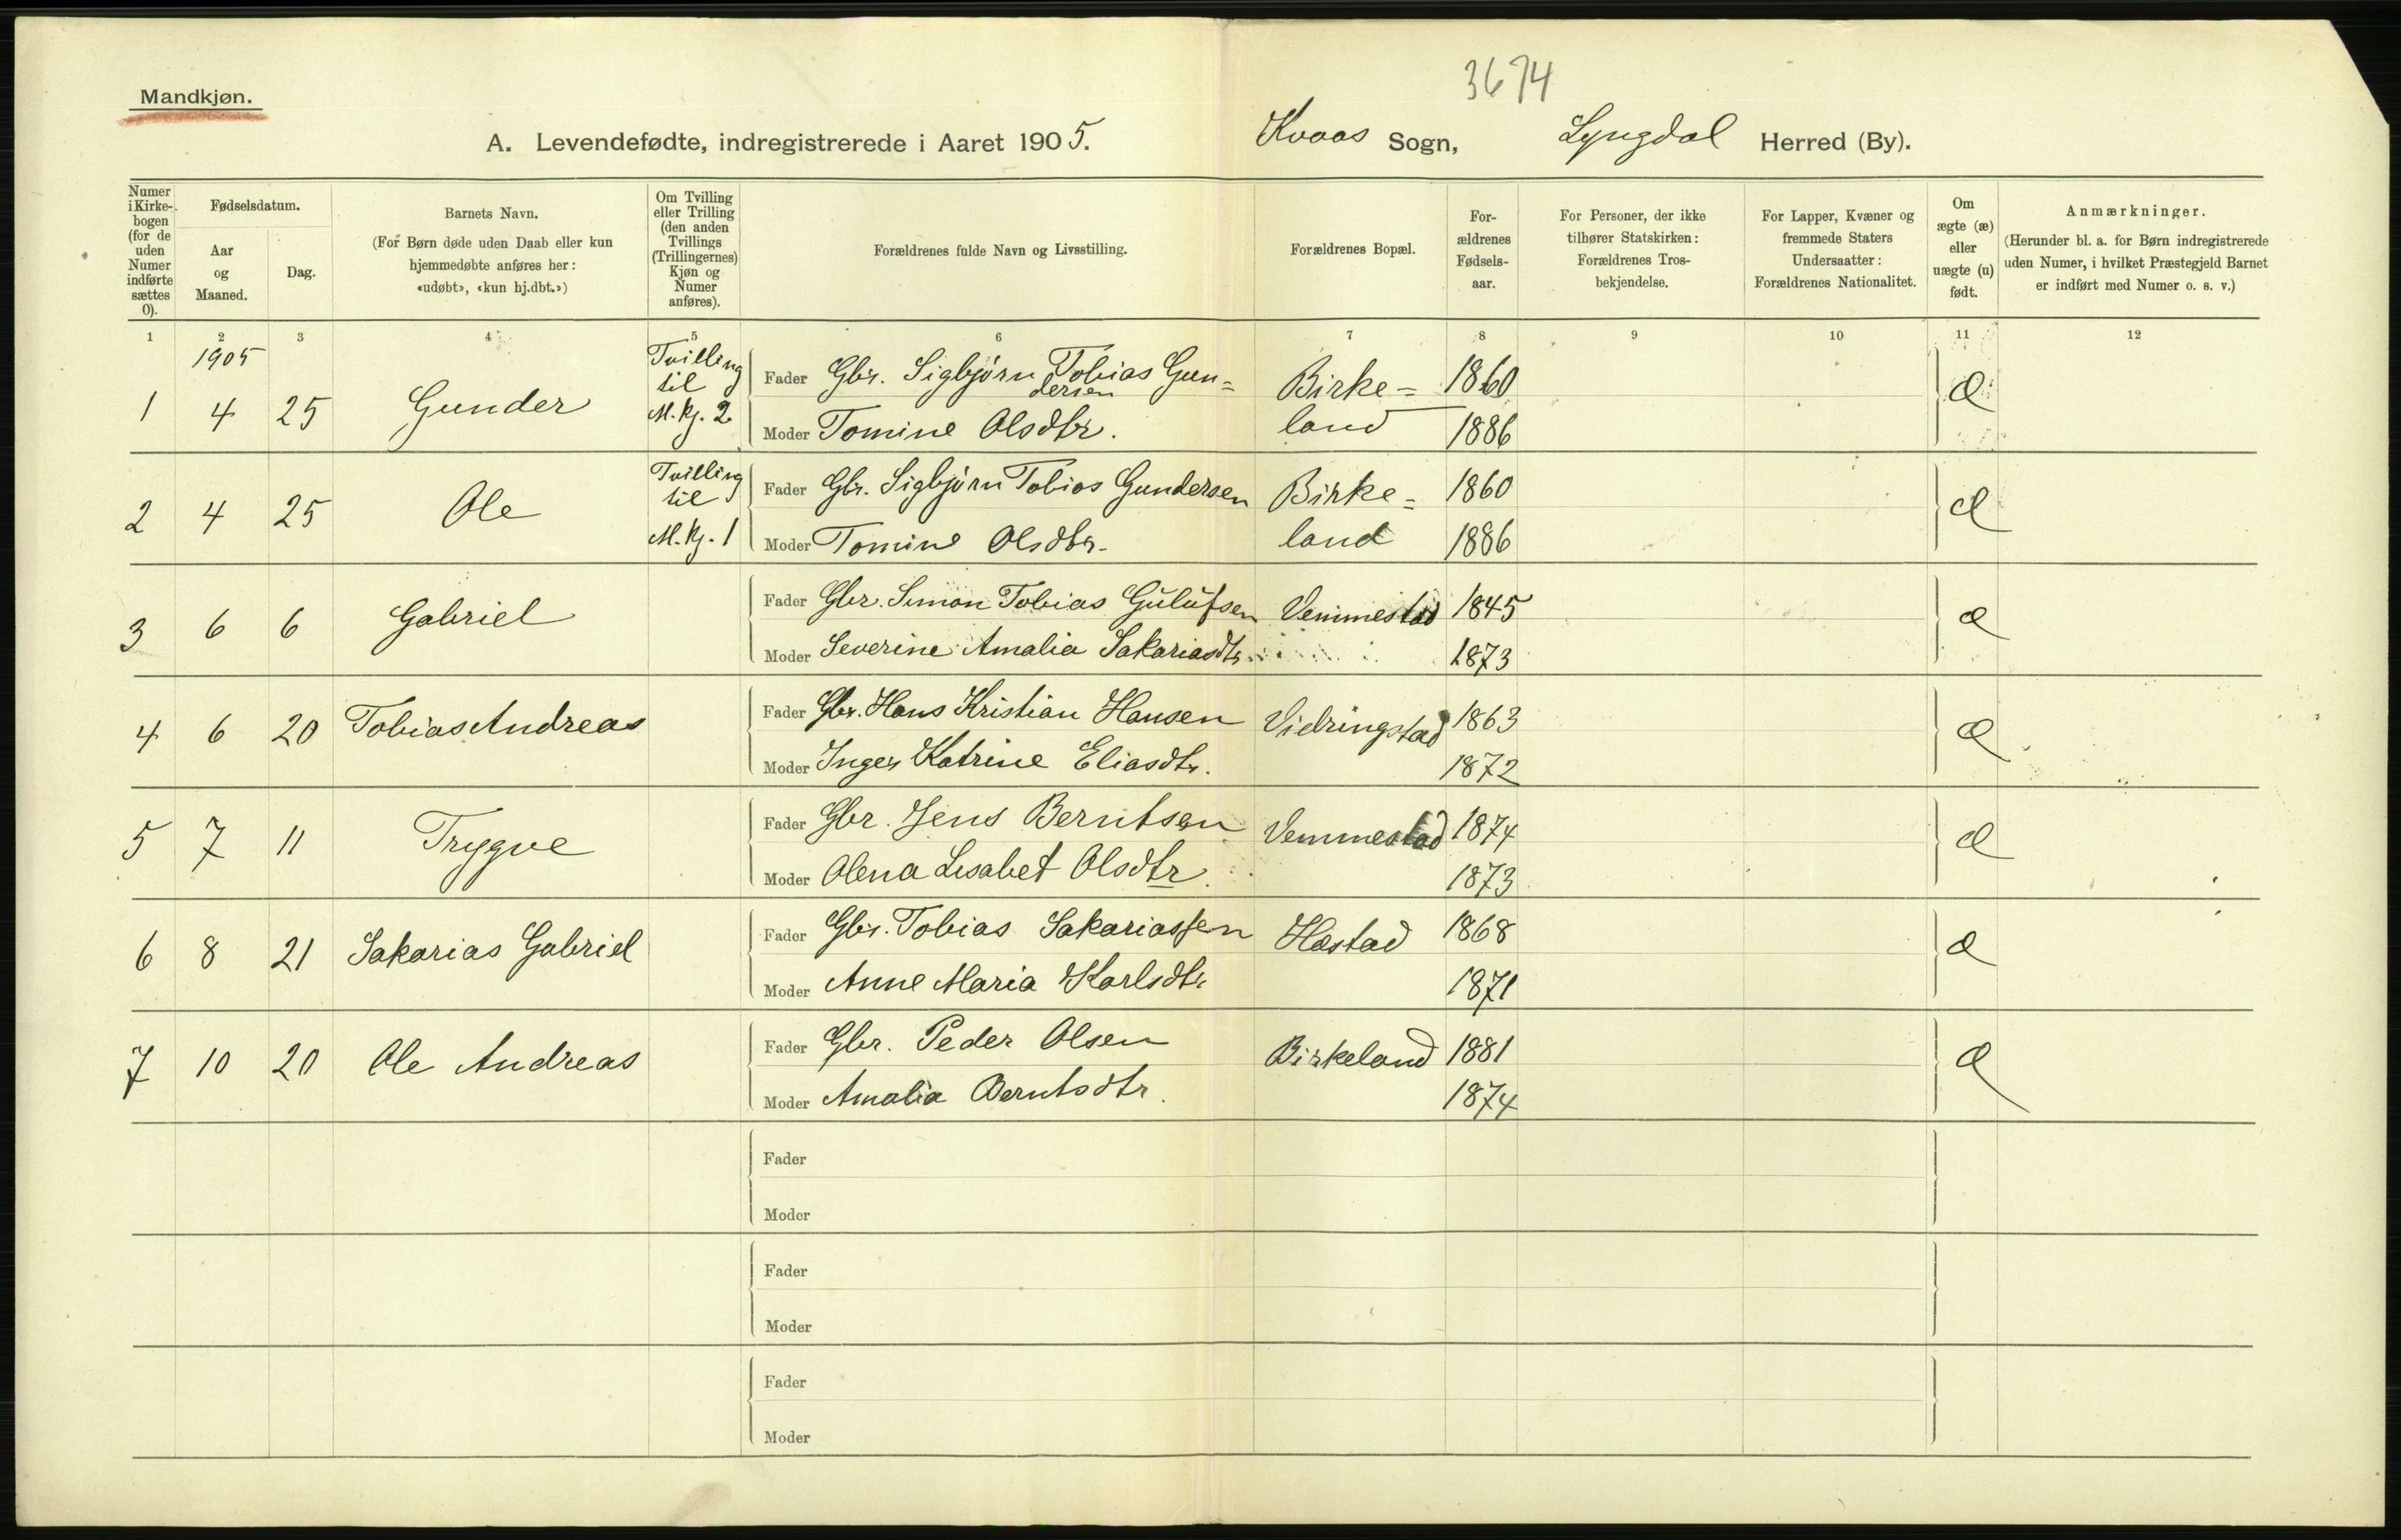 3674
Mandkjøn.
A. Levendefødte, indregistrerede i Aaret 1905. Kvaas Sogn, Lyngdal Herred (By).
Numer i Kirkebogen (for de uden Numer indførte sættes 0).
Fødselsdatum.
Aar og Maaned.
Dag.
Barnets Navn.
(For Børn døde uden Daab eller kun hjemmedøbte anføres her: «udøbt», «kun hj.dbt.»)
Om Tvilling eller Trilling (den anden Tvillings (Trillingernes) Kjøn og Numer anføres).
Forældrenes fulde Navn og Livsstilling.
Forældrenes Bopæl.
Forældrenes Fødselsaar.
For Personer, der ikke tilhører Statskirken: Forældrenes Trosbekjendelse.
For Lapper, Kvæner og fremmede Staters Undersaatter: Forældrenes Nationalitet.
Om ægte (æ) eller uægte (u) født.
Anmærkninger.
(Herunder bl. a. for Børn indregistrerede uden Numer, i hvilket Præstegjeld Barnet er indført med Numer o. s. v.)
1 2 3 4 5 6 7 8 9 10 11 12
1905
1 4 25 Gunder Tvilling til M.kj. 2 Fader Gbr. Sigbjørn Tobias Gundersen Birke= 1860 æ
Moder Tomine Olsdtr. land 1886
2 4 25 Ole Tvilling til M.kj. 1 Fader Gbr. Sigbjørn Tobias Gundersen Birke= 1860 æ
Moder Tomine Olsdtr. land 1886
3 6 6 Gabriel Fader Gbr. Simon Tobias Gulufsen Vemmestad 1845 æ
Moder Severine Amalia Sakariasdtr. 1873
4 6 20 Tobias Andreas Fader Gbr. Hans Kristian Hansen Vidringstad 1863 æ
Moder Inger Katrine Eliasdtr. 1872
5 7 11 Trygve Fader Gbr. Jens Berntsen Vemmestad 1874 æ
Moder Olena Lisabet Olsdtr. 1873
6 8 21 Sakarias Gabriel Fader Gbr. Tobias Sakariassen Hæstad 1868 æ
Moder Anne Maria Karlsdtr 1871
7 10 20 Ole Andreas Fader Gbr. Peder Olsen Birkeland 1881 æ
Moder Amalia Berntsdtr. 1874
Fader
Moder
Fader
Moder
Fader
Moder